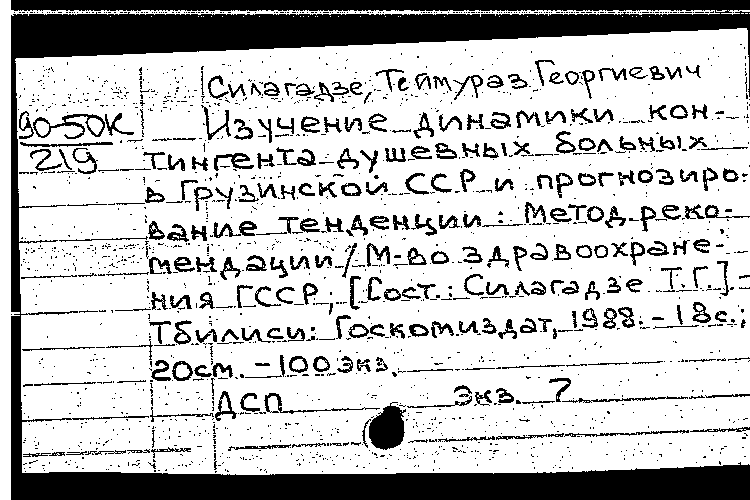 Силагадзе, Теймураз Георгиевич
90-50К
219
Изучение динамики кон-
тингента душевных больных
в Грузинской ССР и прогнозиро-
вание тенденции: Метод. реко-
мендации / М-во здравоохране-
ния ГССР; [Сост.: Силагадзе Т.Г.]. -
Тбилиси: Госкомиздат, 1988. - 18с.;
20см. - 100 экз.
ДСП Экз. 7.